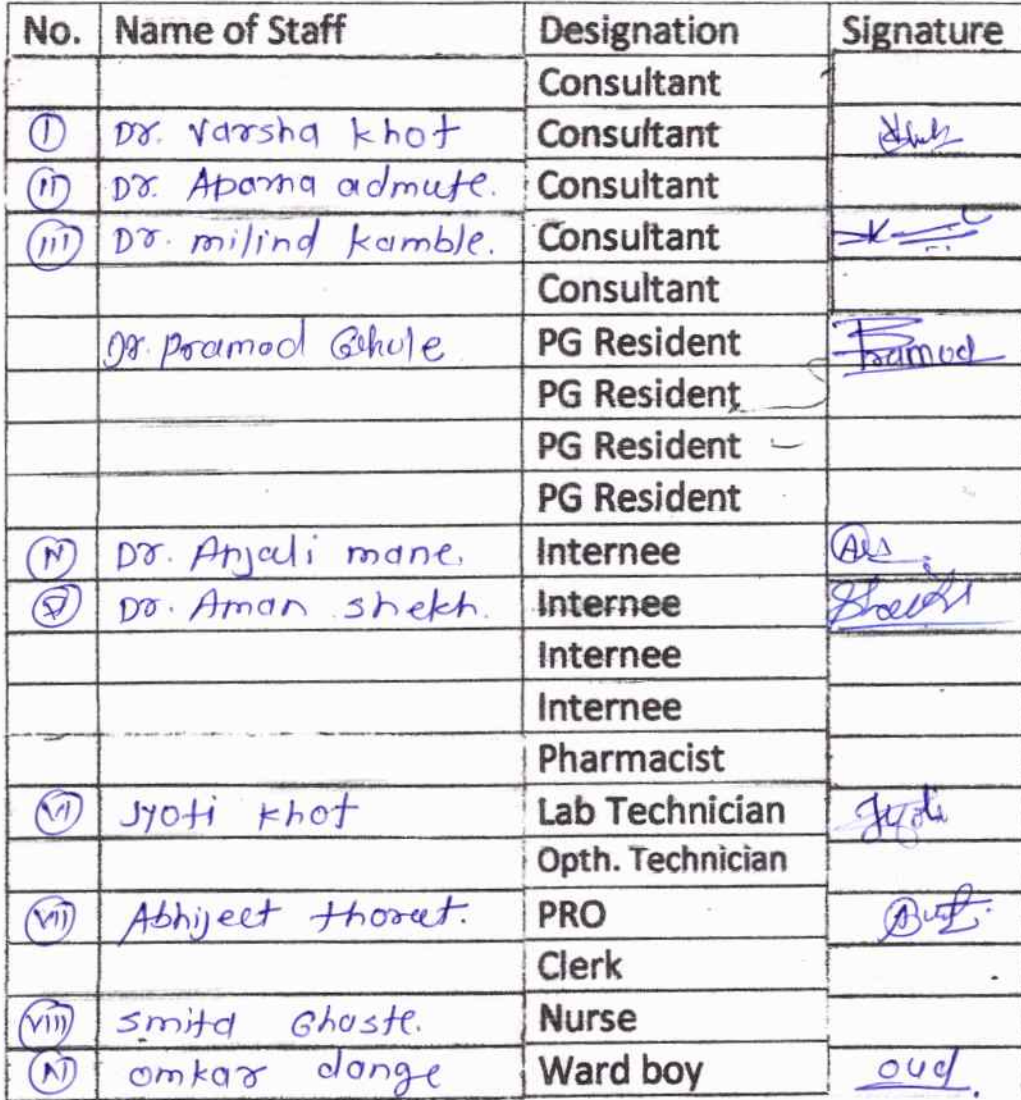 No. Name of Staff Designation Signature
Consultant
I Dr. Varsha khot Consultant
II Dr. Aparna admute. Consultant
III Dr. milind kamble. Consultant
Consultant
Dr. Pramod Ghule PG Resident Pramod
PG Resident
PG Resident
PG Resident
IV Dr. Anjali mane. Internee
V Dr. Aman shekh. Internee Shaikh
Internee
Internee
Pharmacist
VI Jyoti khot Lab Technician Jyoti
Opth. Technician
VII Abhijeet thorat. PRO
Clerk
VIII smita Ghaste. Nurse
omkar dange Ward boy